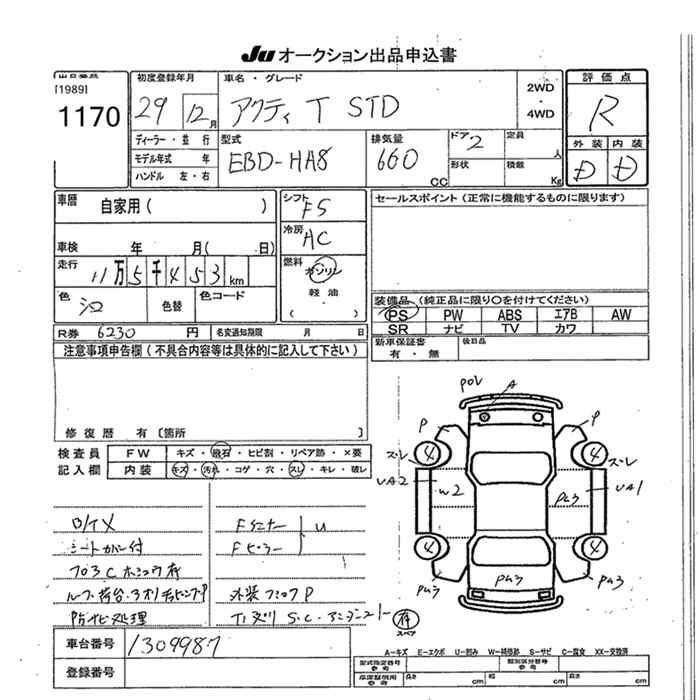 Ju オークション出品申込書
出品番号
[1989]
1170
初度登録年月
29 12月
車名・グレード
アクティ T STD
2WD
・
4WD
評価点
R
ディーラー・並行
モデル年式 年
ハンドル 左・右
型式
EBD-HA8
排気量
660 cc
ドア 2
定員 人
形状
積載 Kg
外装 内装
D D
車歴
自家用( )
車検 年 月( 日)
走行
11万5千453km
色 シロ
色替
色コード
シフト
F5
冷房
AC
燃料
ガソリン
軽油
( ・ )
セールスポイント (正常に機能するものに限ります)
装備品 (純正品に限り〇を付けてください)
PS PW ABS エアB AW
SR ナビ TV カワ
R券 6230 円
名変通知期限 月 日
新車保証書
有・無
後日品
注意事項申告欄(不具合内容等は具体的に記入して下さい)
修復歴 有〔箇所
検査員
記入欄
FW キズ・飛石・ヒビ割・リペア跡・×要
内装 キズ・汚れ・コゲ・穴・スレ・キレ・破レ
シートカバー付
防サビ処理
Fピラー
U
外装
S.C.
POV A
P P
スレ 4 4 スレ
UA2 W2 PU3 UA1
4 4
PU3 PU3 PU3
スペア
車台番号 1309987
登録番号
A-キズ E-エクボ U-凹み W-補修跡 S-サビ C-腐食 XX-交換済
型式指定番号
参考
類別区分番号
参考
車庫証明用
参考
長さ cm
幅 cm
高さ cm